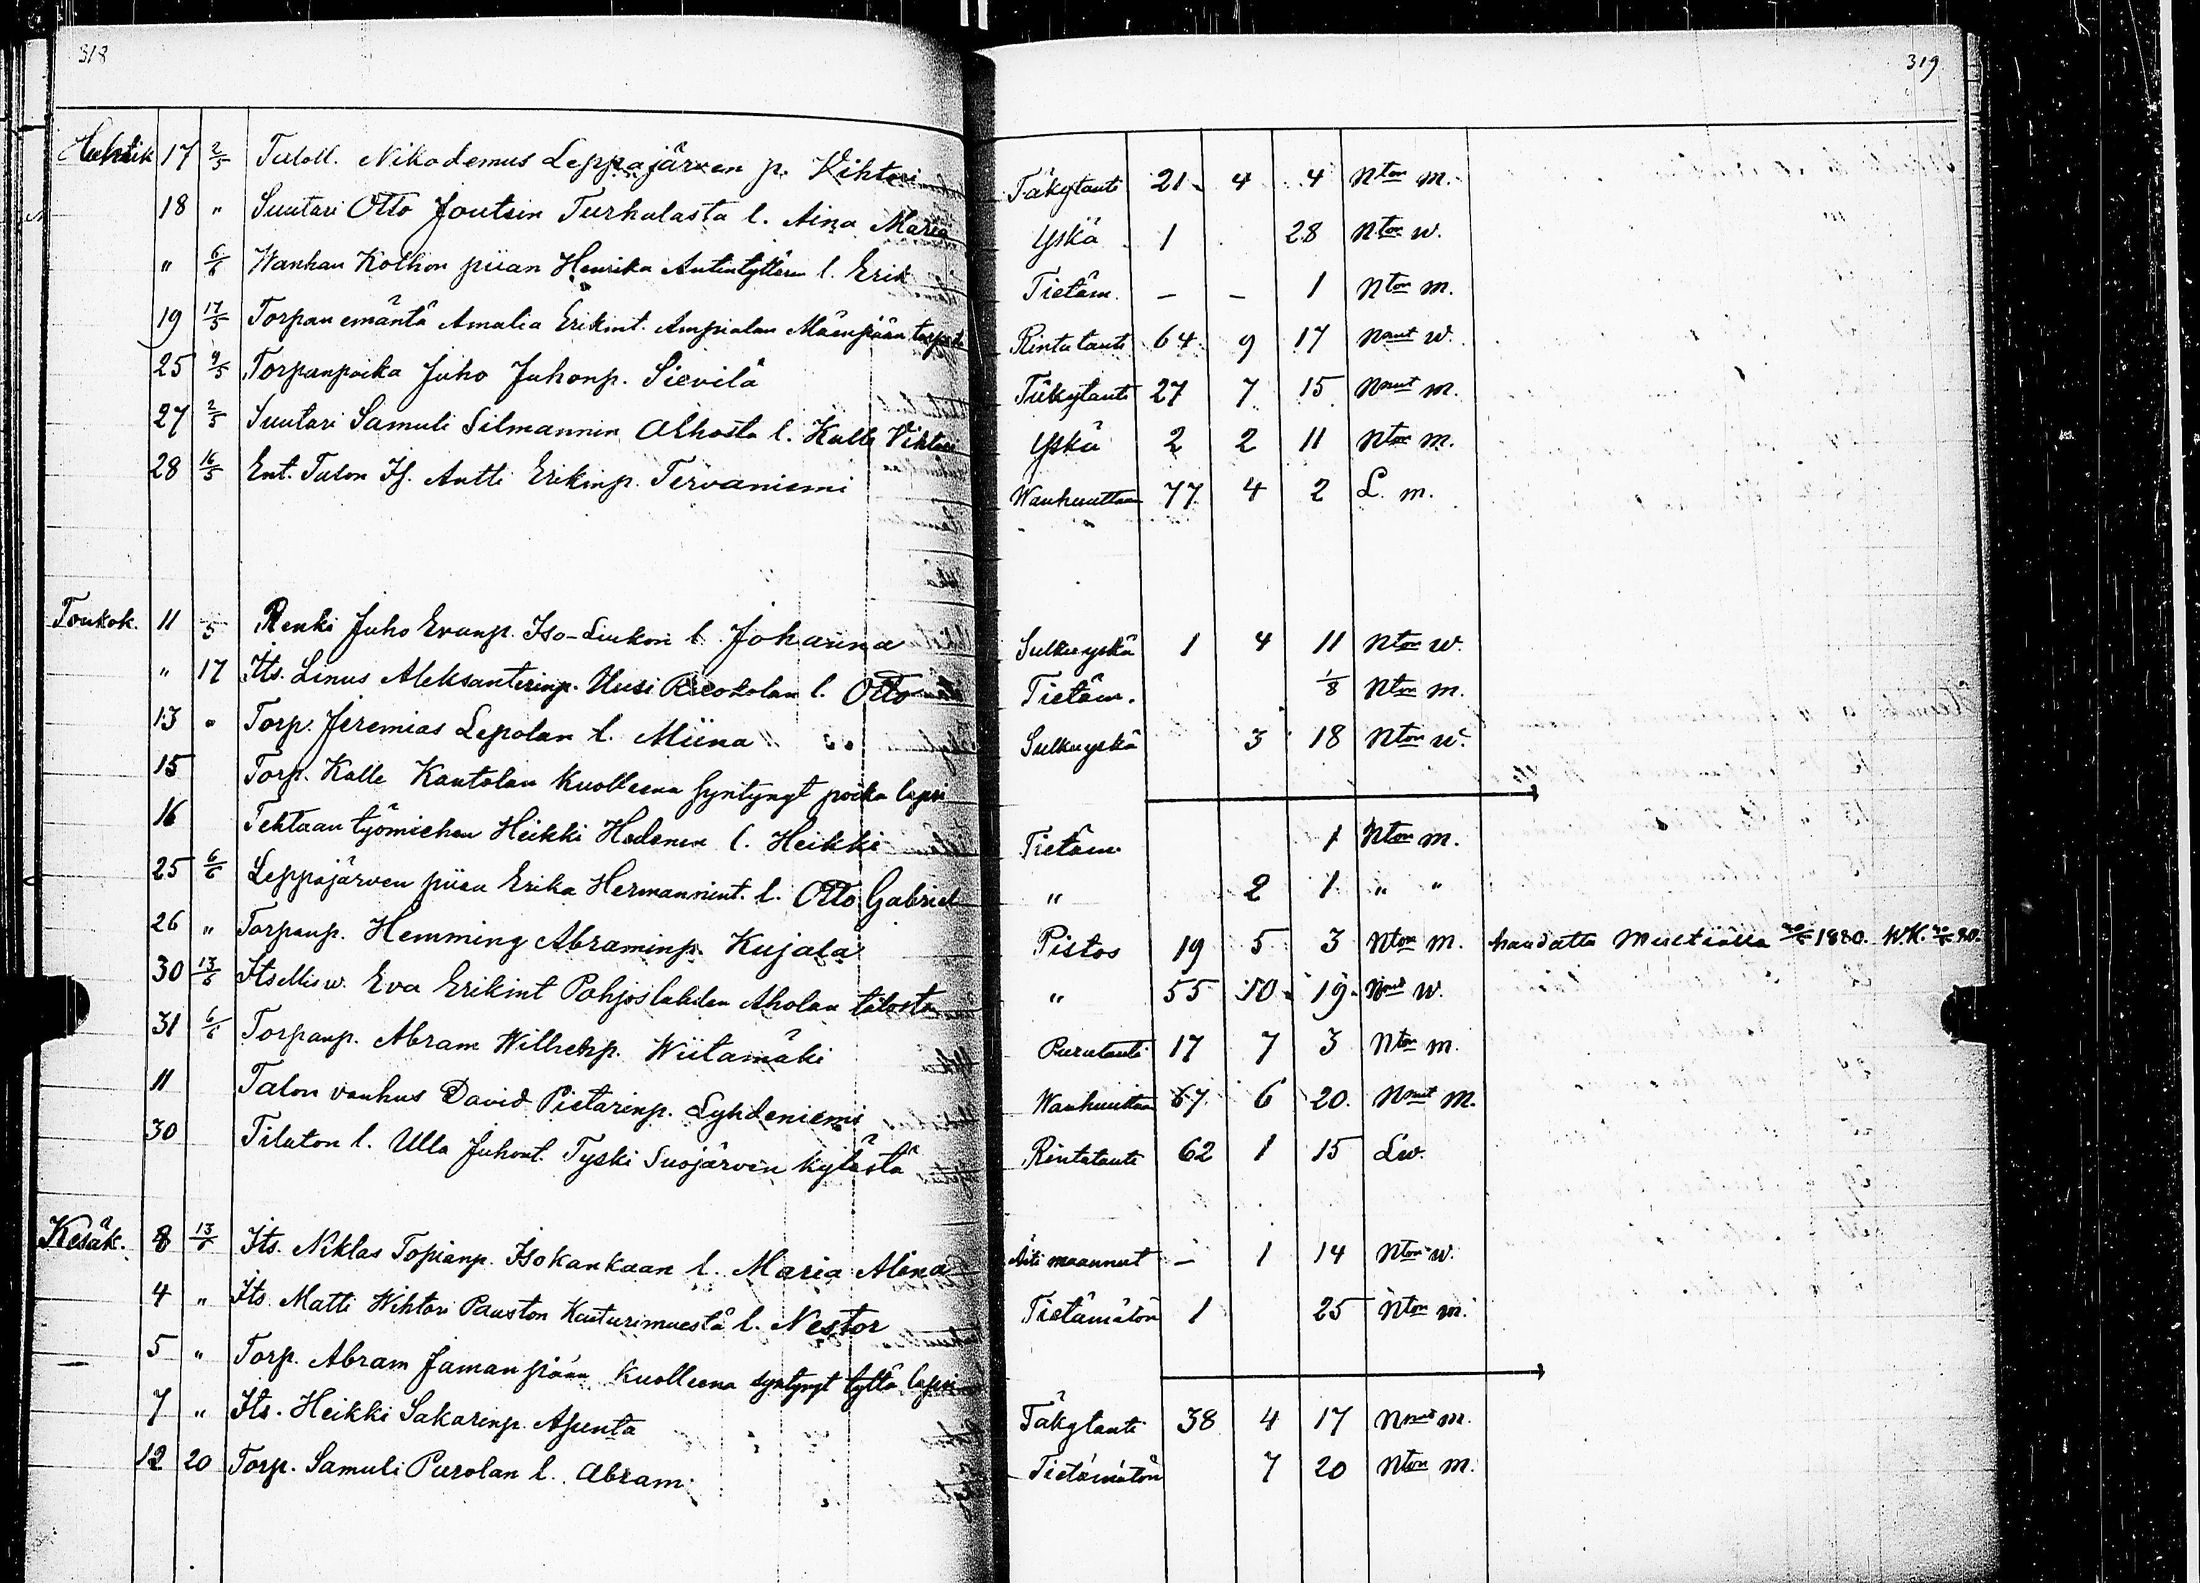 318
319
Huhtik 17 2/5 Taloll. Nikodemus Leppäjärven p. Vihtori Täkytauti 21 4 4 Nton m.
18 " Suutari Otto Joutsin Turhalasta l. Aina Maria Yskä 1 28 Nton w.
" 6/6 Wanhan Kolhon piian Henrika Antintyttären l. Erik Tietäm. – – 1 Nton m.
19 17/5 Torpan emäntä Amalia Erikint. Ampialan Mäenpään torpasta Rintatauti 64 9 17 Naut w.
25 9/5 Torpanpoika Juho Juhonp. Sievilä Täkytauti 27 7 15 Nnut m.
27 2/5 Suutari Samuli Silmannin Alhosta l. Kalle Vihtori Yskä 2 2 11 Nton m.
28 16/5 Ent. Talon Is. Antti Erikinp. Tervaniemi Wanhuuttaan 77 4 2 L. m.
Toukok. 11 5 Renki Juho Evanp. Iso-Liukon l. Johanna Sulkuyskä 1 4 11 Nton w.
" 17 Its. Linus Aleksanterinp. Uusi l. Otto Tietäm. 1/8 Nton m.
13 " Torp. Jeremias Lepolan l. Miina Sulkuyskä 3 18 Nton w.
15 Torp. Kalle Kantolan kuolleena syntynyt poika lapsi
16 Tehtaan työmiehen Heikki Hedenen l. Heikki Tietäm 1 Nton m.
25 6/6 Leppäjärven piian Erika Hermannint. l. Otto Gabriel " 2 1 " "
26 " Torpanp. Hemming Abraminp. Kujala Pistos 19 5 3 Nton m. haudattu Multialla 1880. W.K. 80.
30 13/6 Itsellis w. Eva Erikint Pohjoslahden Aholan talosta " 55 10 19 Nnut w.
31 6/6 Torpanp. Abram Wilhelmp. Wiitamäki Purutauti 17 7 3 Nton m.
11 Talon vanhus David Pietarinp. Lyhdeniemi Wanhuuttaan 67 6 20 Nnut m.
30 Tilaton l. Ulla Juhont. Tyski Suojärven kylästä Rintatauti 62 1 15 Lw.
Kesäk. 8 13/6 Its. Niklas Topianp. Isokankaan l. Maria Alina Äiti maannut – 1 14 Nton w.
4 " Its. Matti Wihtori Pauston l. Nestor Tietämätön 1 25 Nton m.
5 " Torp. Abram Jamanpään kuolleena syntynyt tyttö lapsi
7 " Its. Heikki Sakarinp. Asunta Täkytauti 38 4 17 Nnut m.
12 20 Torp. Samuli Purolan l. Abram Tietämätön 7 20 Nton m.